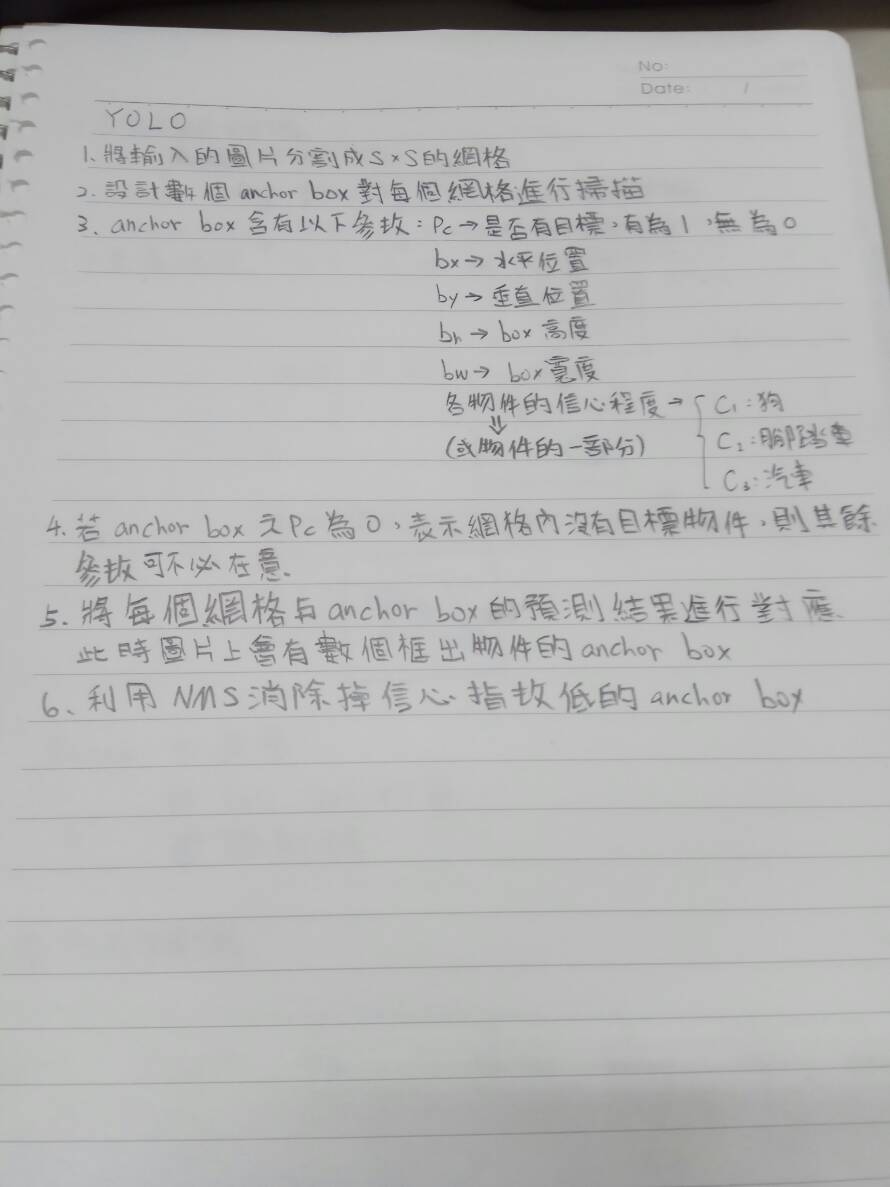 No:
Date: /
YOLO
1、將輸入的圖片分割成S×S的網格
2、設計數個 anchor box 對每個網格進行掃描
3、anchor box 含有以下參数：Pc→是否有目標，有為1，無為0
bx→水平位置
by→垂直位置
bh→box高度
bw→box寬度
各物件的信心程度→ C₁:狗
⇓ C₂:腳踏車
(或物件的一部分) C₃:汽車
4、若 anchor box 之Pc為0，表示網格內沒有目標物件，則其餘
參数可不必在意、
5、將每個網格与anchor box的預測結果進行對應、
此時圖片上會有數個框出物件的anchor box
6、利用NMS消除掉信心指数低的anchor box